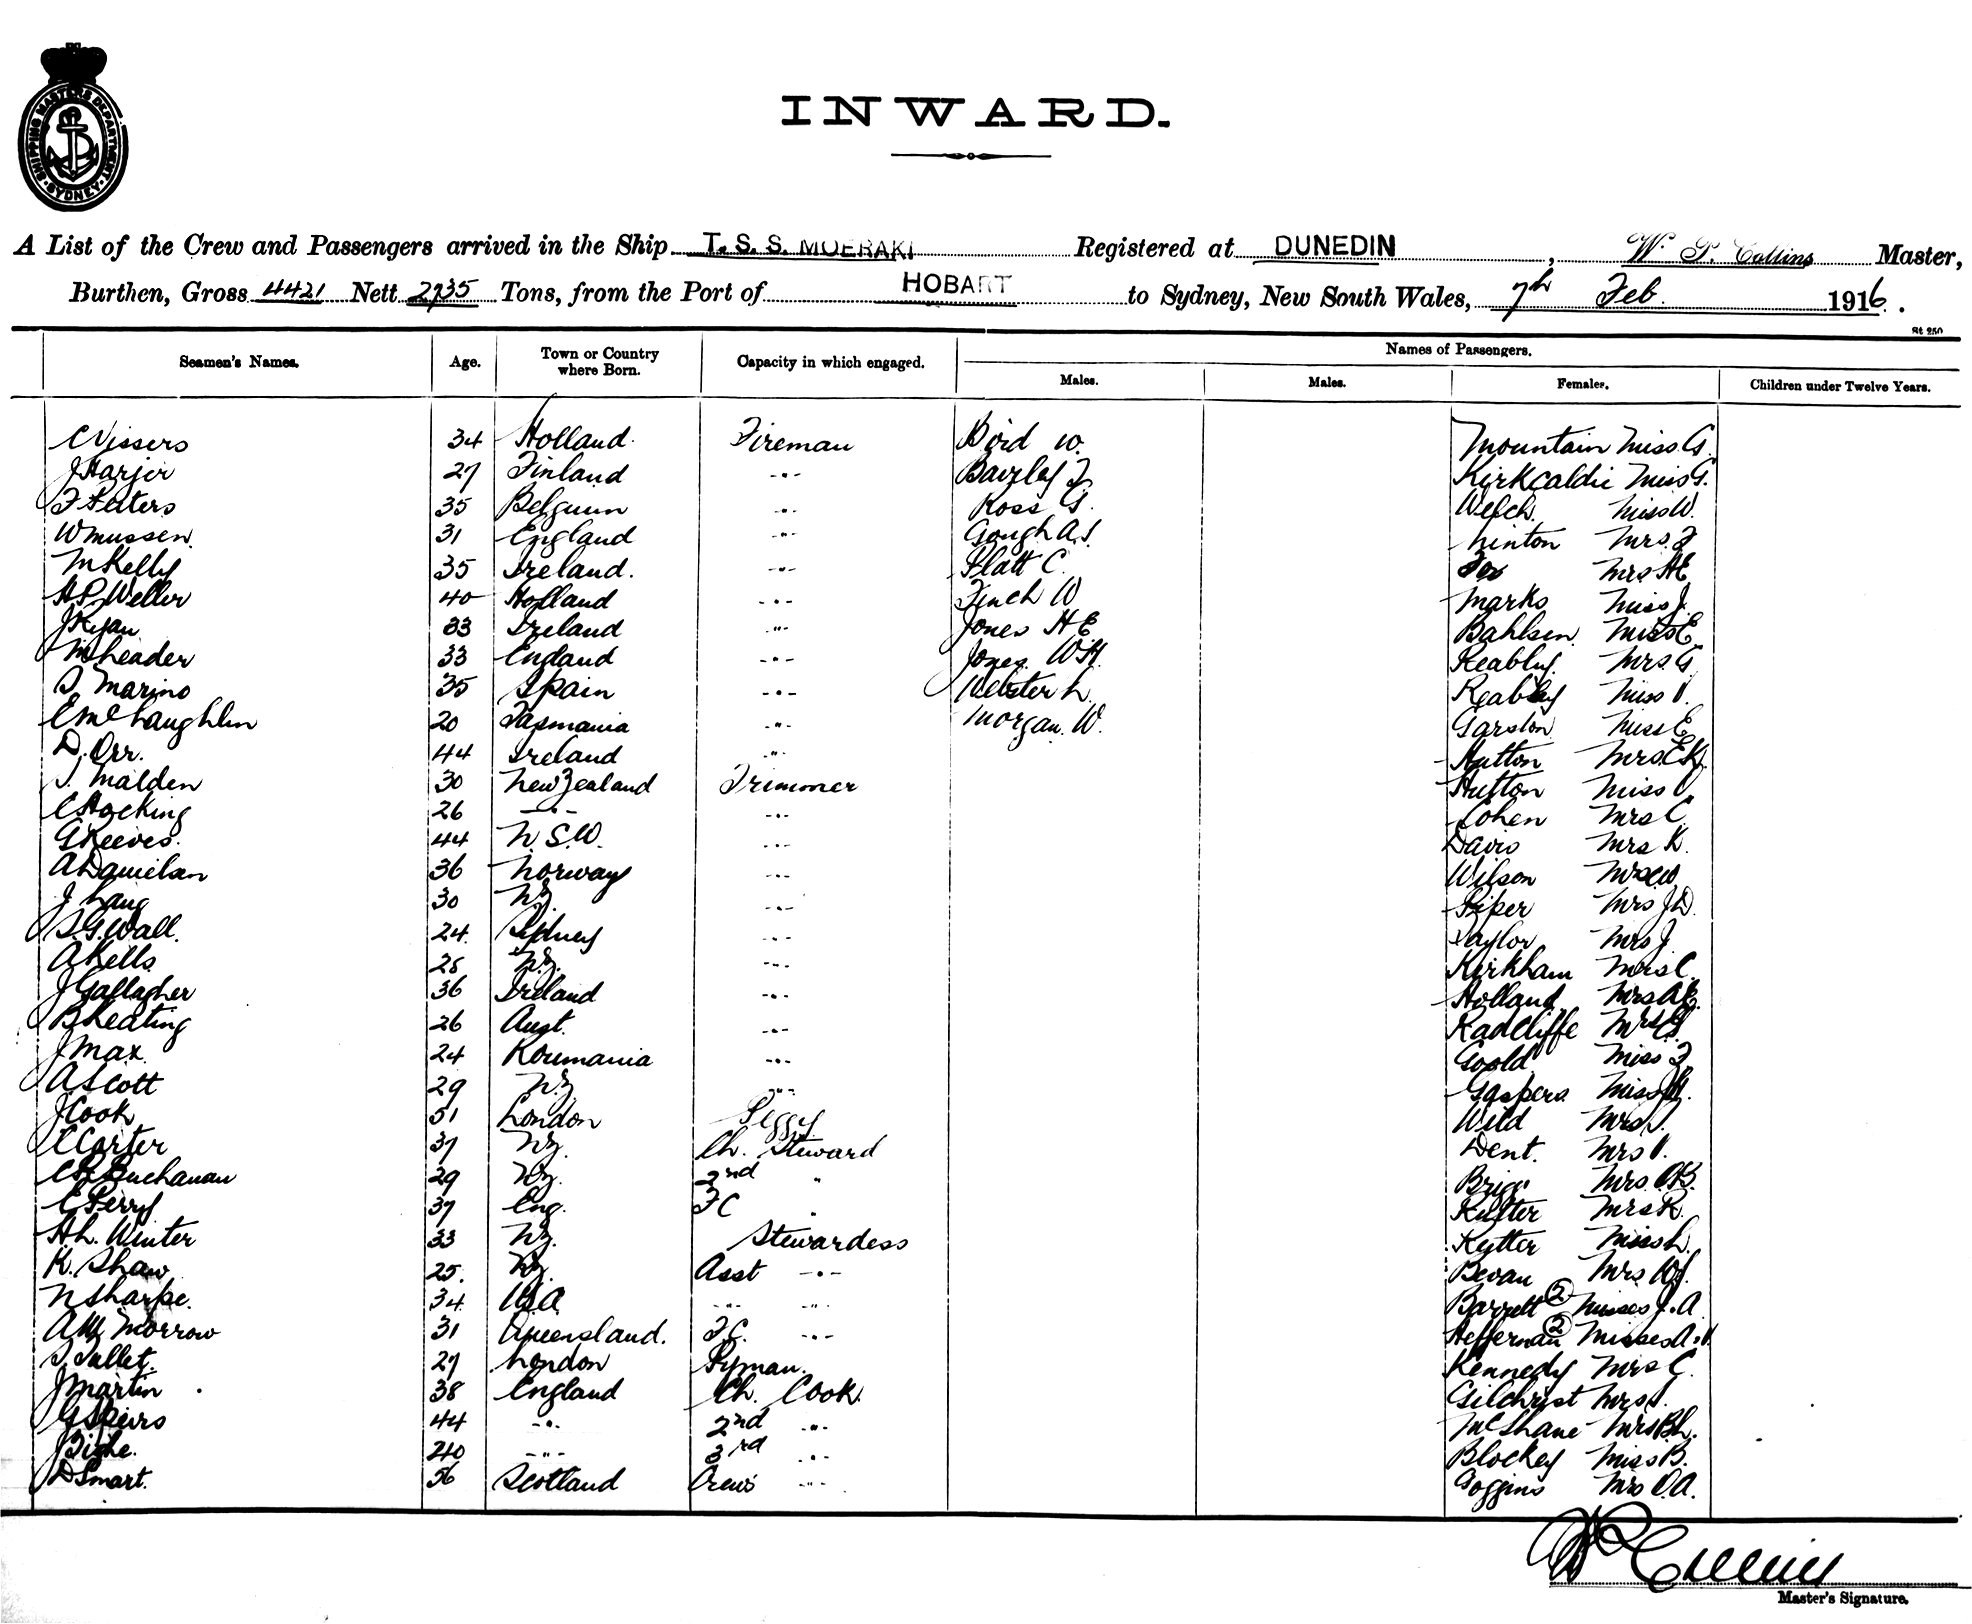 SHIPPING MASTERS DEPARTMENT
SYDNEY
INWARD.
A List of the Crew and Passengers arrived in the Ship T. S. S. MOERAKI Registered at DUNEDIN, W. P. Collins Master,
Burthen, Gross 4421 Nett 2735 Tons, from the Port of HOBART to Sydney, New South Wales, 7th Feb. 1916.
St 250
Seamen's Names. Age. Town or Country where Born. Capacity in which engaged. Names of Passengers.
Males. Males. Females. Children under Twelve Years.
C Vissers 34 Holland. Fireman W. Mountain Miss G.
27 Finland -"- Kirkcaldie Miss G.
F Peters 35 -"- Ross G. Welch. Miss W.
W Mussen. 31 England -"- Gough A.J. Linton Mrs. F
M Kelly 35 Ireland. -"- Platt C. Fox Mrs H E
H P Weller 40 Holland -"- Finch W Marks Miss J.
J Ryan 33 Ireland -"- Jones H E Bahlsen Miss E
33 England -"- Jones W H. Mrs G
S Marino 35 Spain -"- Webster L. Miss V.
E McLaughlin 20 Tasmania -"- Morgan. W. Garston Miss E
D. Orr. 44 Ireland -"- Hutton Mrs E K.
T. Malden 30 New Zealand Trimmer Hutton Miss
C Hocking 26 -"- -"- Cohen Mrs C
G Reeves. 44 N S. W. -"- Davis Mrs K.
A Danielsen 36 Norway -"- Wilson Mrs W
J Lang 30 NZ. -"- Piper Mrs J D.
S G. Wall. 24. Sydney -"- Taylor Mrs J
A Kells 25 NZ. -"- Kirkham Mrs C.
J Gallagher 36 Ireland -"- Holland Mrs A E.
B Keating 26 Aust. -"- Radcliffe Mrs
J Max. 24 Roumania -"- Goold Miss F
A Scott 29 NZ -"- Gaspers Miss
J Cook 51 London Peggy Wild Mrs
C Carter 37 NZ. Ch. Steward Dent. Mrs V.
Buchanan 29 NZ. 2nd " Mrs.
E Perry 37 Eng. FC " Mrs R.
H L. Winter 33 NZ. Stewardess Miss L.
K. Shaw 25. NZ. Asst -"- Bevan Mrs W J.
N Sharpe. 34 -"- -"- Barrett (2) Misses J. A
A W Morrow 31 Queensland. F.C. -"- Heffernan (2) Misses A. V
T Tallet. 27 London Pyman. Kennedy Mrs C.
J Martin 38 England Ch. Cook. Gilchrist Mrs
G Speirs 44 -"- 2nd -"- McShane Mrs B L.
J 40 -"- 3rd -"- Blockey Miss B.
D Smart. 56 Scotland Crews -"- Goggins Mrs O. A.
W P Collins
Master's Signature.